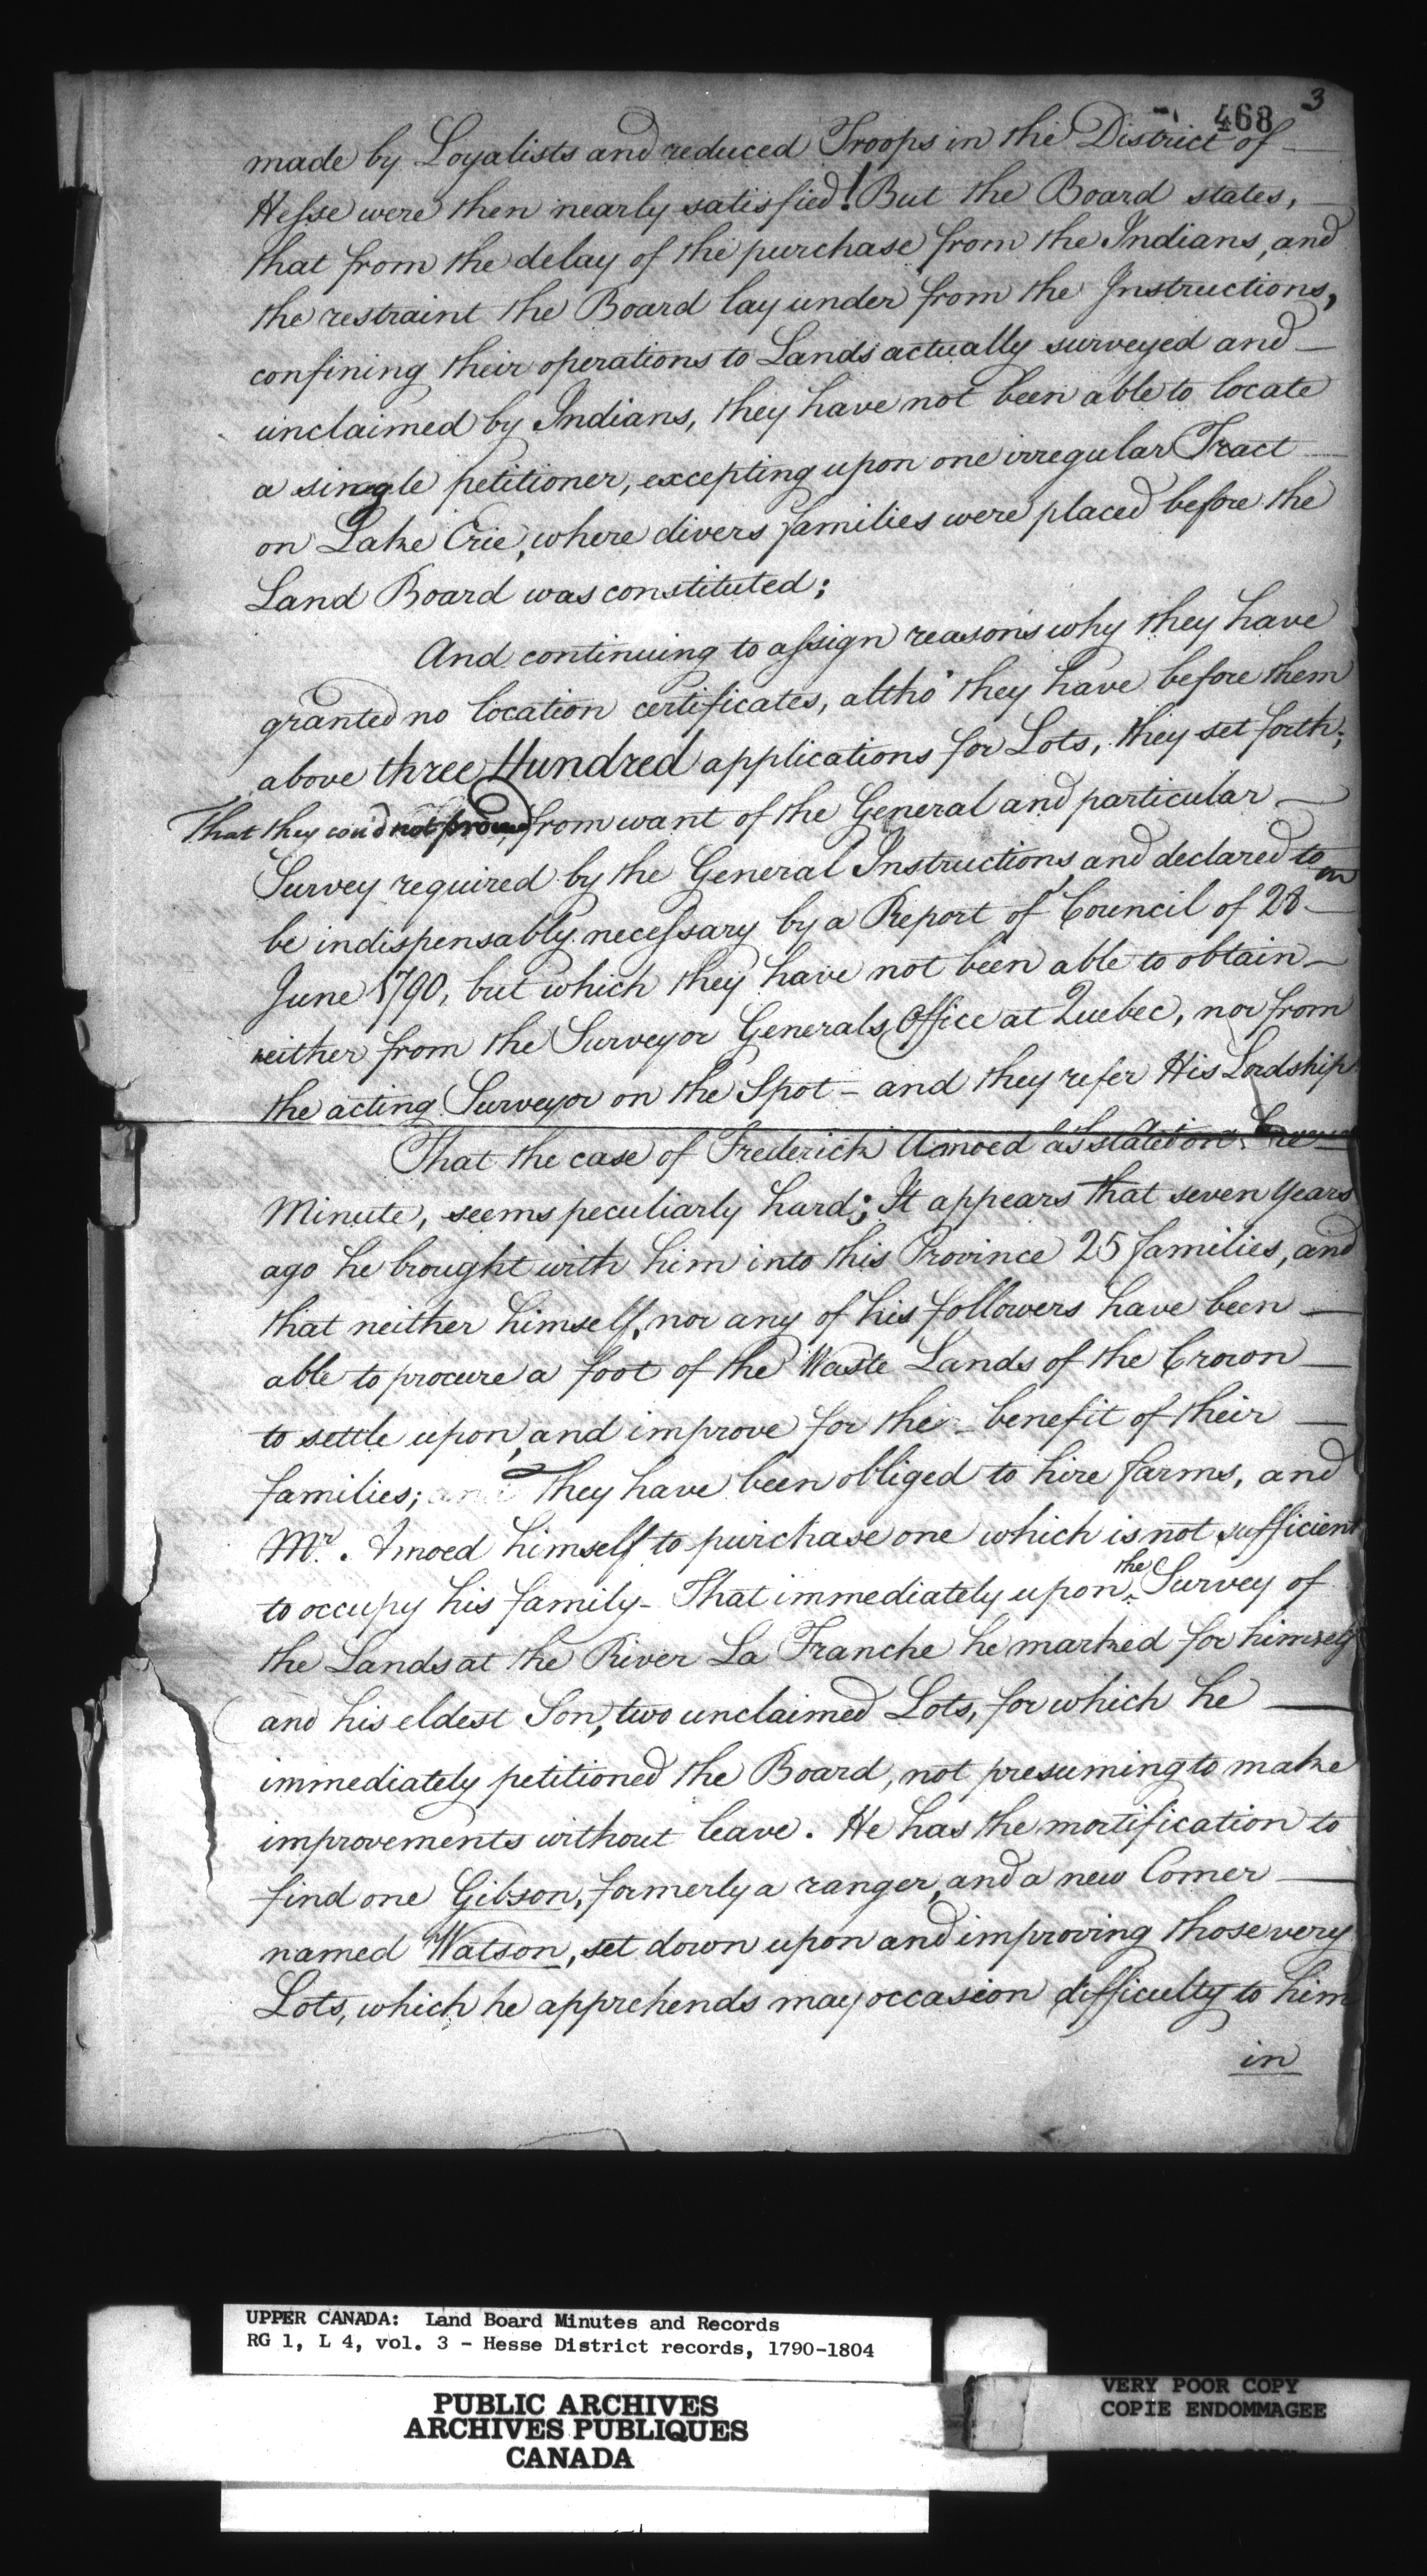 3
468
made by Loyalists and reduced Troops in the District of
Hesse were then nearly satisfied! But the Board states,
that from the delay of the purchase from the Indians, and
the restraint the Board lay under from the Instructions,
confining their operations to Lands actually surveyed and
unclaimed by Indians, they have not been able to locate
a single petitioner, excepting upon one irregular Tract
on Lake Erie, where divers families were placed before the
Land Board was constituted;
And continuing to assign reasons why they have
granted no location certificates, altho' they have before them
above three Hundred applications for Lots, they set forth;
That they cou'd not from want of the General and particular
Survey required by the General Instructions, and declared to
be indispensably necessary by a Report of Council of 28
June 1790, but which they have not been able to obtain
neither from the Surveyor Generals Office at Quebec, nor from
the acting Surveyor on the Spot - and they refer His Lordship
That the case of Frederick Arnoed as stated on the
Minute, seems peculiarly hard; It appears that seven years
ago he brought with him into this Province 25 families, and
that neither himself, nor any of his followers have been
able to procure a foot of the Waste Lands of the Crown
to settle upon, and improve for the benefit of their
families; and they have been obliged to hire farms, and
Mr. Arnoed himself to purchase one which is not sufficient
to occupy his family - That immediately upon the Survey of
the Lands at the River La Tranche he marked for himself
and his eldest Son, two unclaimed Lots, for which he
immediately petitioned the Board, not presuming to make
improvements without leave. He has the mortification to
find one Gibson, formerly a ranger, and a new Comer
named Watson, set down upon and improving those very
Lots, which he apprehends may occasion difficulty to him
in
UPPER CANADA: Land Board Minutes and Records
RG 1, L 4, vol. 3 - Hesse District records, 1790-1804
PUBLIC ARCHIVES
ARCHIVES PUBLIQUES
CANADA
VERY POOR COPY
COPIE ENDOMMAGEE